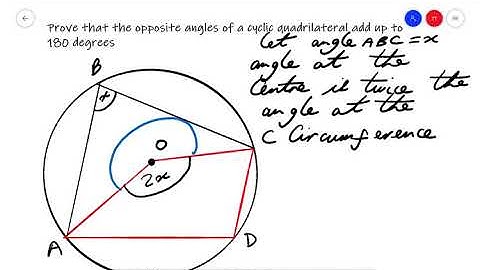 Prove that the opposite angles of a cyclic quadrilateral add up to
180 degrees
let angle ABC = x
angle at the
Centre is twice the
angle at the
C Circumference
B
x
O
2x
A
D